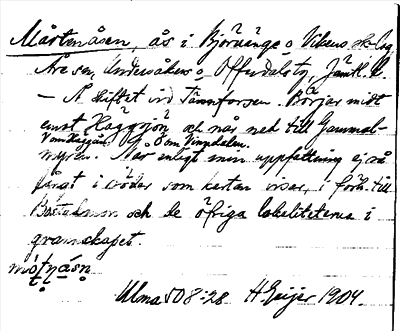 Mårtenåsen, ås i Björnänge o Vikens sk:log
Åre sn, Undersåkers o Offerdals tg, Jämtl. l.
— Å skiftet vid Tännforsen. Börjar midt
emot Häggsjön och når ned till Gammal-
V om Häggsjö. Ö om Sinndalen.
myren. Når enligt min uppfattning ej så
långt i söder som kartan visar, i förh. till
och de öfriga lokaliteterna i
grannskapet.
mótnåsn
Ulma 508:28 H Geijer 1904.